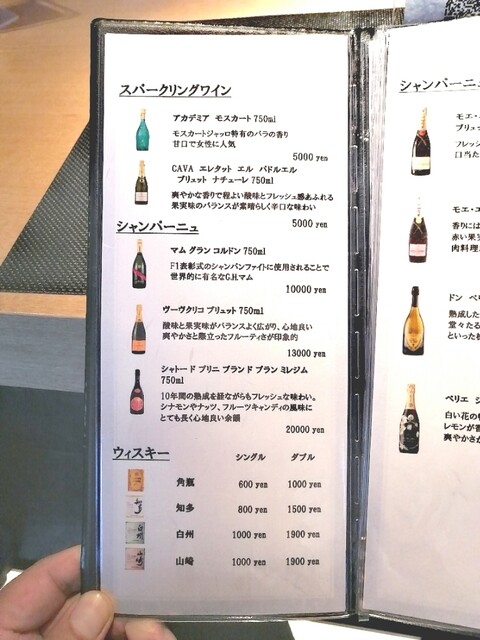 スパークリングワイン
アカデミア モスカート 750ml
モスカートジャッロ特有のバラの香り
甘口で女性に人気
5000 yen
CAVA エレタット エル パドルエル
ブリュット ナチューレ 750ml
爽やかな香りで程よい酸味とフレッシュ感あふれる
果実味のバランスが素晴らしく辛口な味わい
5000 yen
シャンパーニュ
マム グラン コルドン 750ml
F1表彰式のシャンパンファイトに使用されることで
世界的に有名なG.H.マム
10000 yen
ヴーヴクリコ ブリュット 750ml
酸味と果実味がバランスよく広がり、心地良い
爽やかさと際立ったフルーティさが印象的
13000 yen
シャトード ブリニ ブランド ブラン ミレジム
750ml
10年間の熟成を経ながらもフレッシュな味わい。
シナモンやナッツ、フルーツキャンディの風味に
とても長く心地良い余韻
20000 yen
ウィスキー
シングル ダブル
角瓶 600 yen 1000 yen
知多 800 yen 1500 yen
白州 1000 yen 1900 yen
山崎 1000 yen 1900 yen
シャンパーニュ
モエ・
ブリュッ
フレッシ
口当た
モエ・エ
香りには
赤い果実
肉料理
ドン ペリ
熟成した
堂々たる
といった
ベリエ ジ
白い花の
レモンが香
爽やかさ